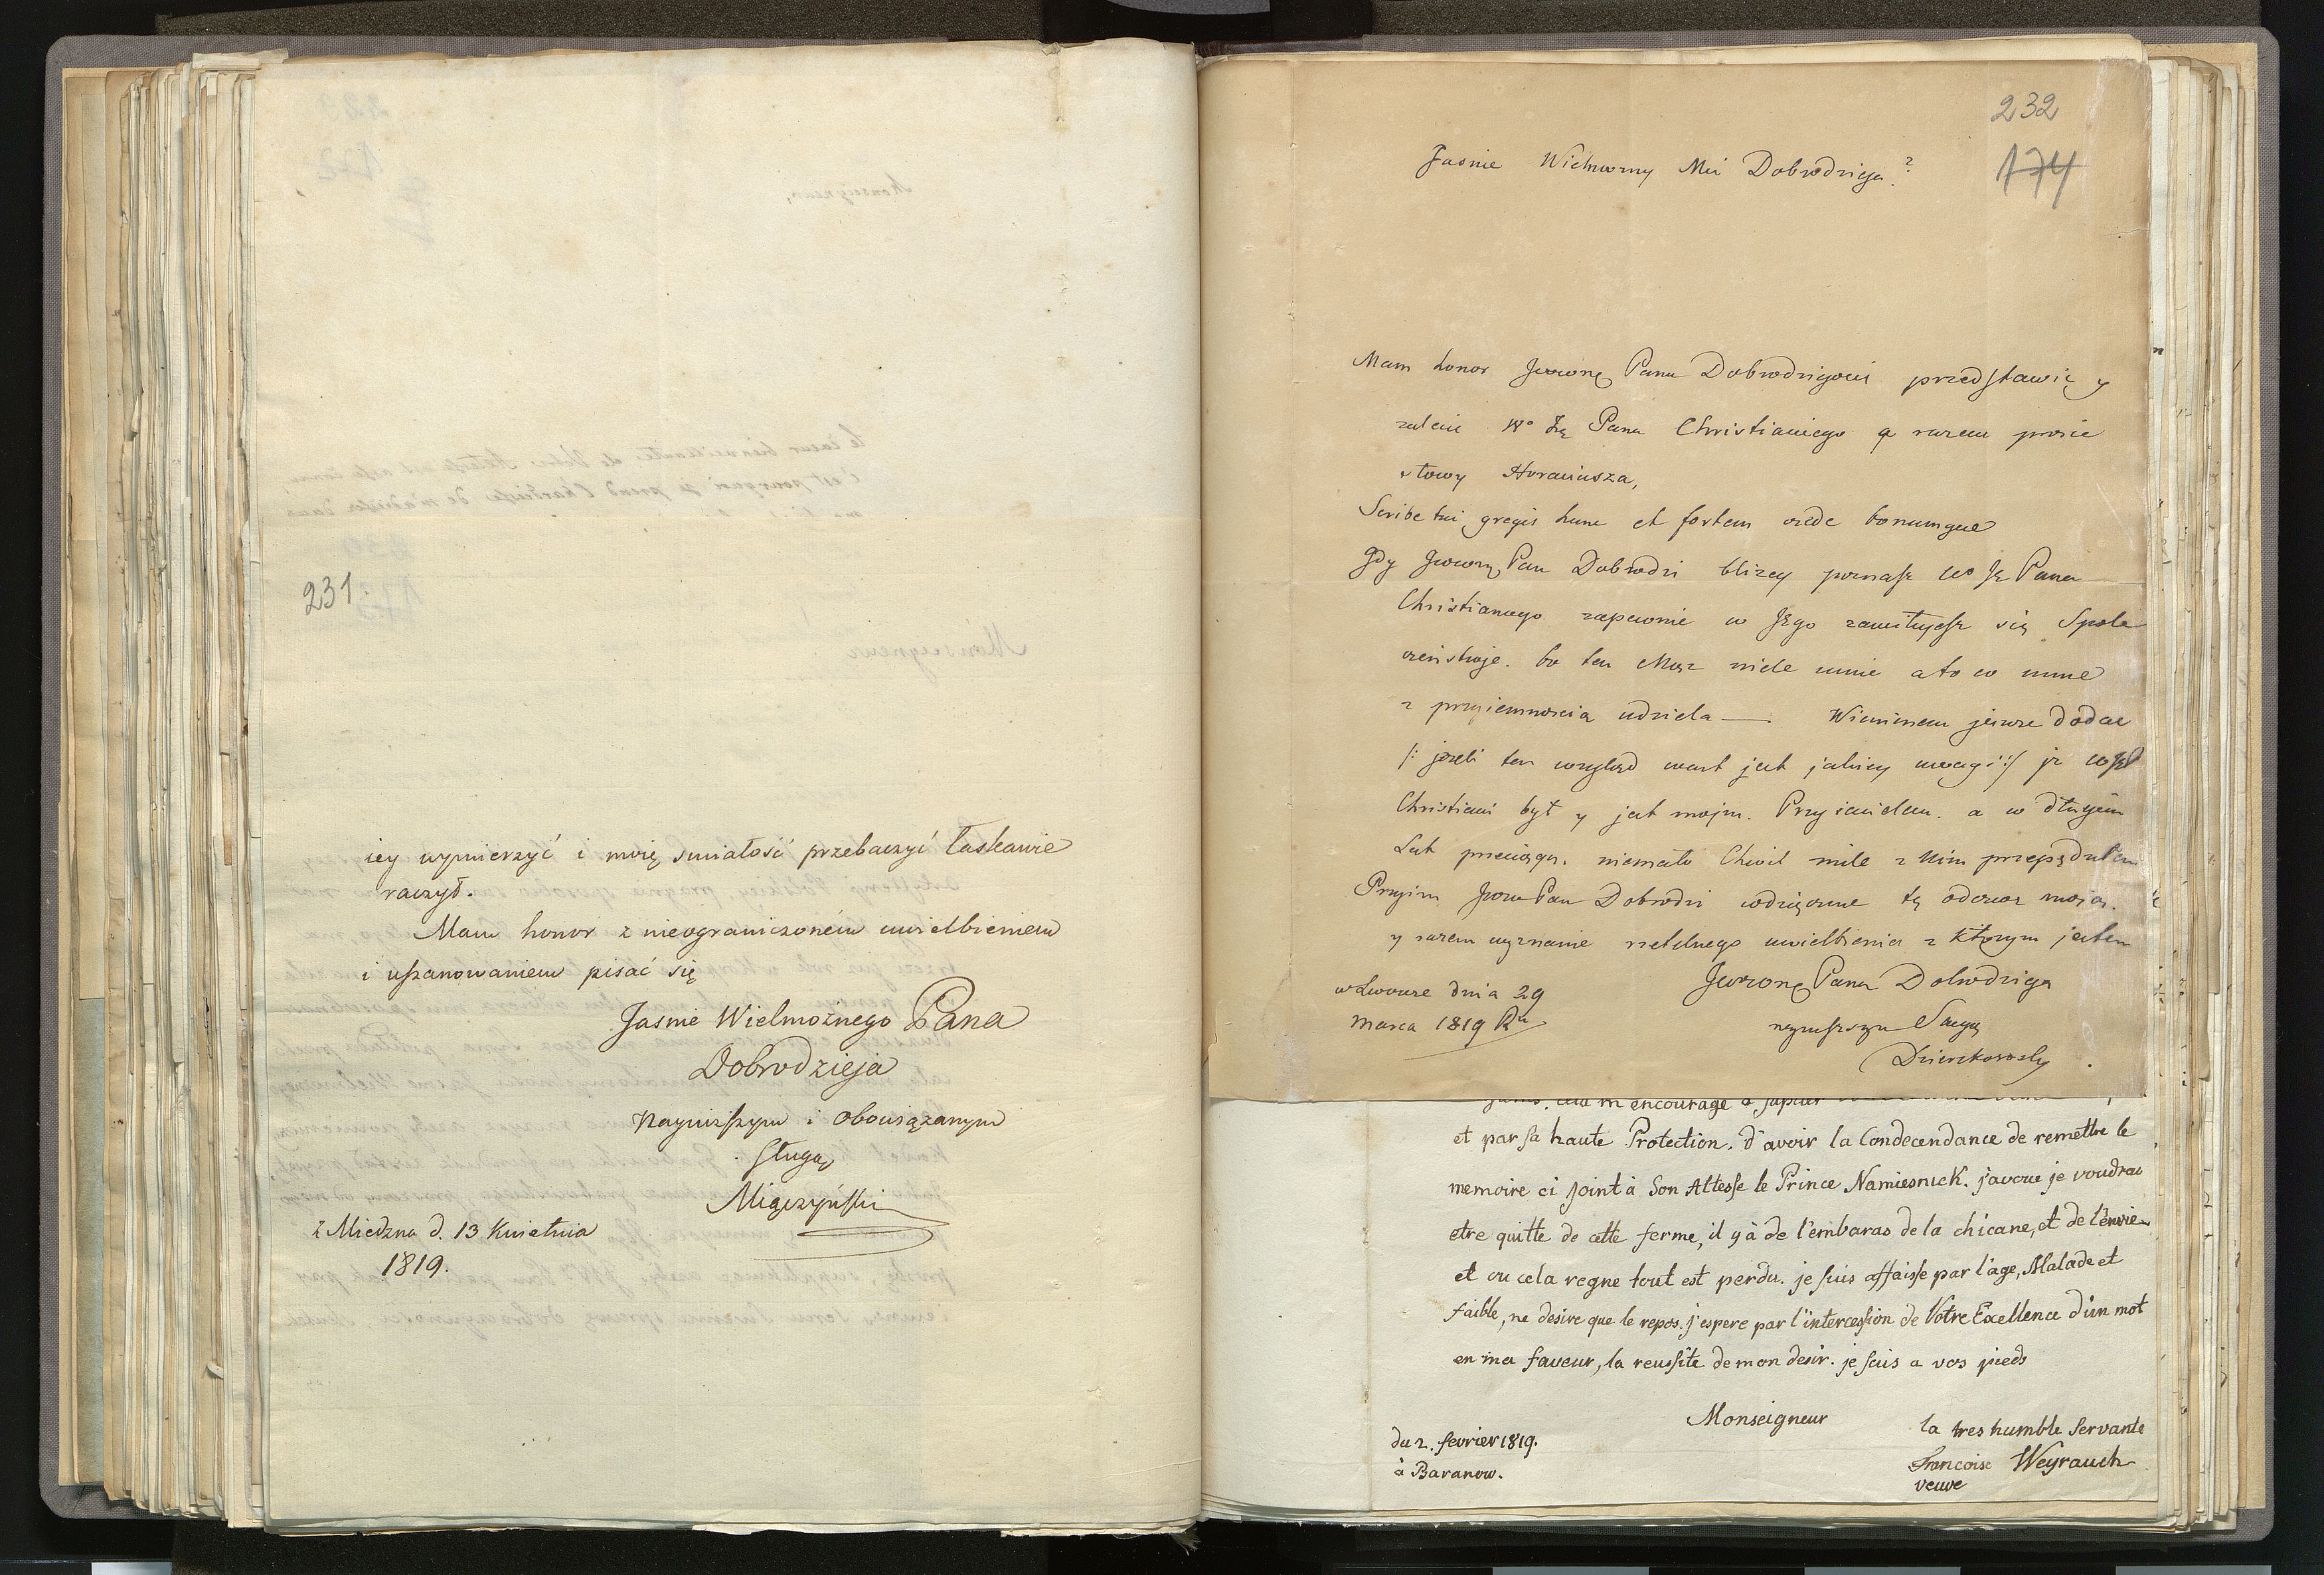 231.
iey wymierzyć i moię smiałość przebaczyć łaskawie
raczył.
Mam honor z nieograniczoném uwielbieniem
i uszanowaniem pisać się
Jasnie Wielmożnego Pana
Dobrodzieja
Nayniższym i obowiązanym
sługą
Miączyński
z Miedzna d. 13 Kwietnia
1819.
232
174
Jasnie Wielmorny Mci Dobrodzieja
Mam honor Jwwoneg Pana Dobrodziejowi przedstawić y
zalecic Wo Ję Pana Christianiego a razem prosic
słowy Horaciusza,
Scribe tui gregis hunc et fortem crede bonumque
Gdy Jwwny Pan Dobrodzi bliżey poznasz Wo Ję Pana
Christianiego zapewnie w Jego zamiłujesz się Społe
czeństwie. bo ten Mąz wiele umie a to co umie
z przyiemnoscią udziela — Winienem jeszcze dodac
/: jezeli ten wzgląd wart jest jakiey uwagi :/ jż WoJX
Christiani był y jest moim Przyiacielem. a w długiem
Lat przeciągu. niemało Chwil mile z Nim przepędziłem
Przyim Jww Pan Dobrodzi wdzięcznie tę odezwę moją.
y razem wyznanie rzetelnego uwielbienia z którym jestem
Jwwoneg Pana Dobrodzieja
wLwowie dnia 29
Marca 1819 Ru
nayniższym Sługą
Dzierzkowski
m'encourage a
et par sa haute Protection, d'avoir la Condecendance de remettre le
memoire ci joint à Son Altesse le Prince Namiesnick. j'avoue je voudrai
etre quitte de cette ferme, il y à de l'embaras de la chicane, et de l'envie
et ou cela regne tout est perdu. je suis affaisse par l'age, Malade et
faible, ne desire que le repos. j'espere par l'intercession de Votre Excellence d'un mot
en ma faveur, la reussite de mon desir. je suis a vos pieds
Monseigneur
la tres humble Servante
du 2. fevrier 1819.
à Baranow.
Francoise Weyrauch
veuve